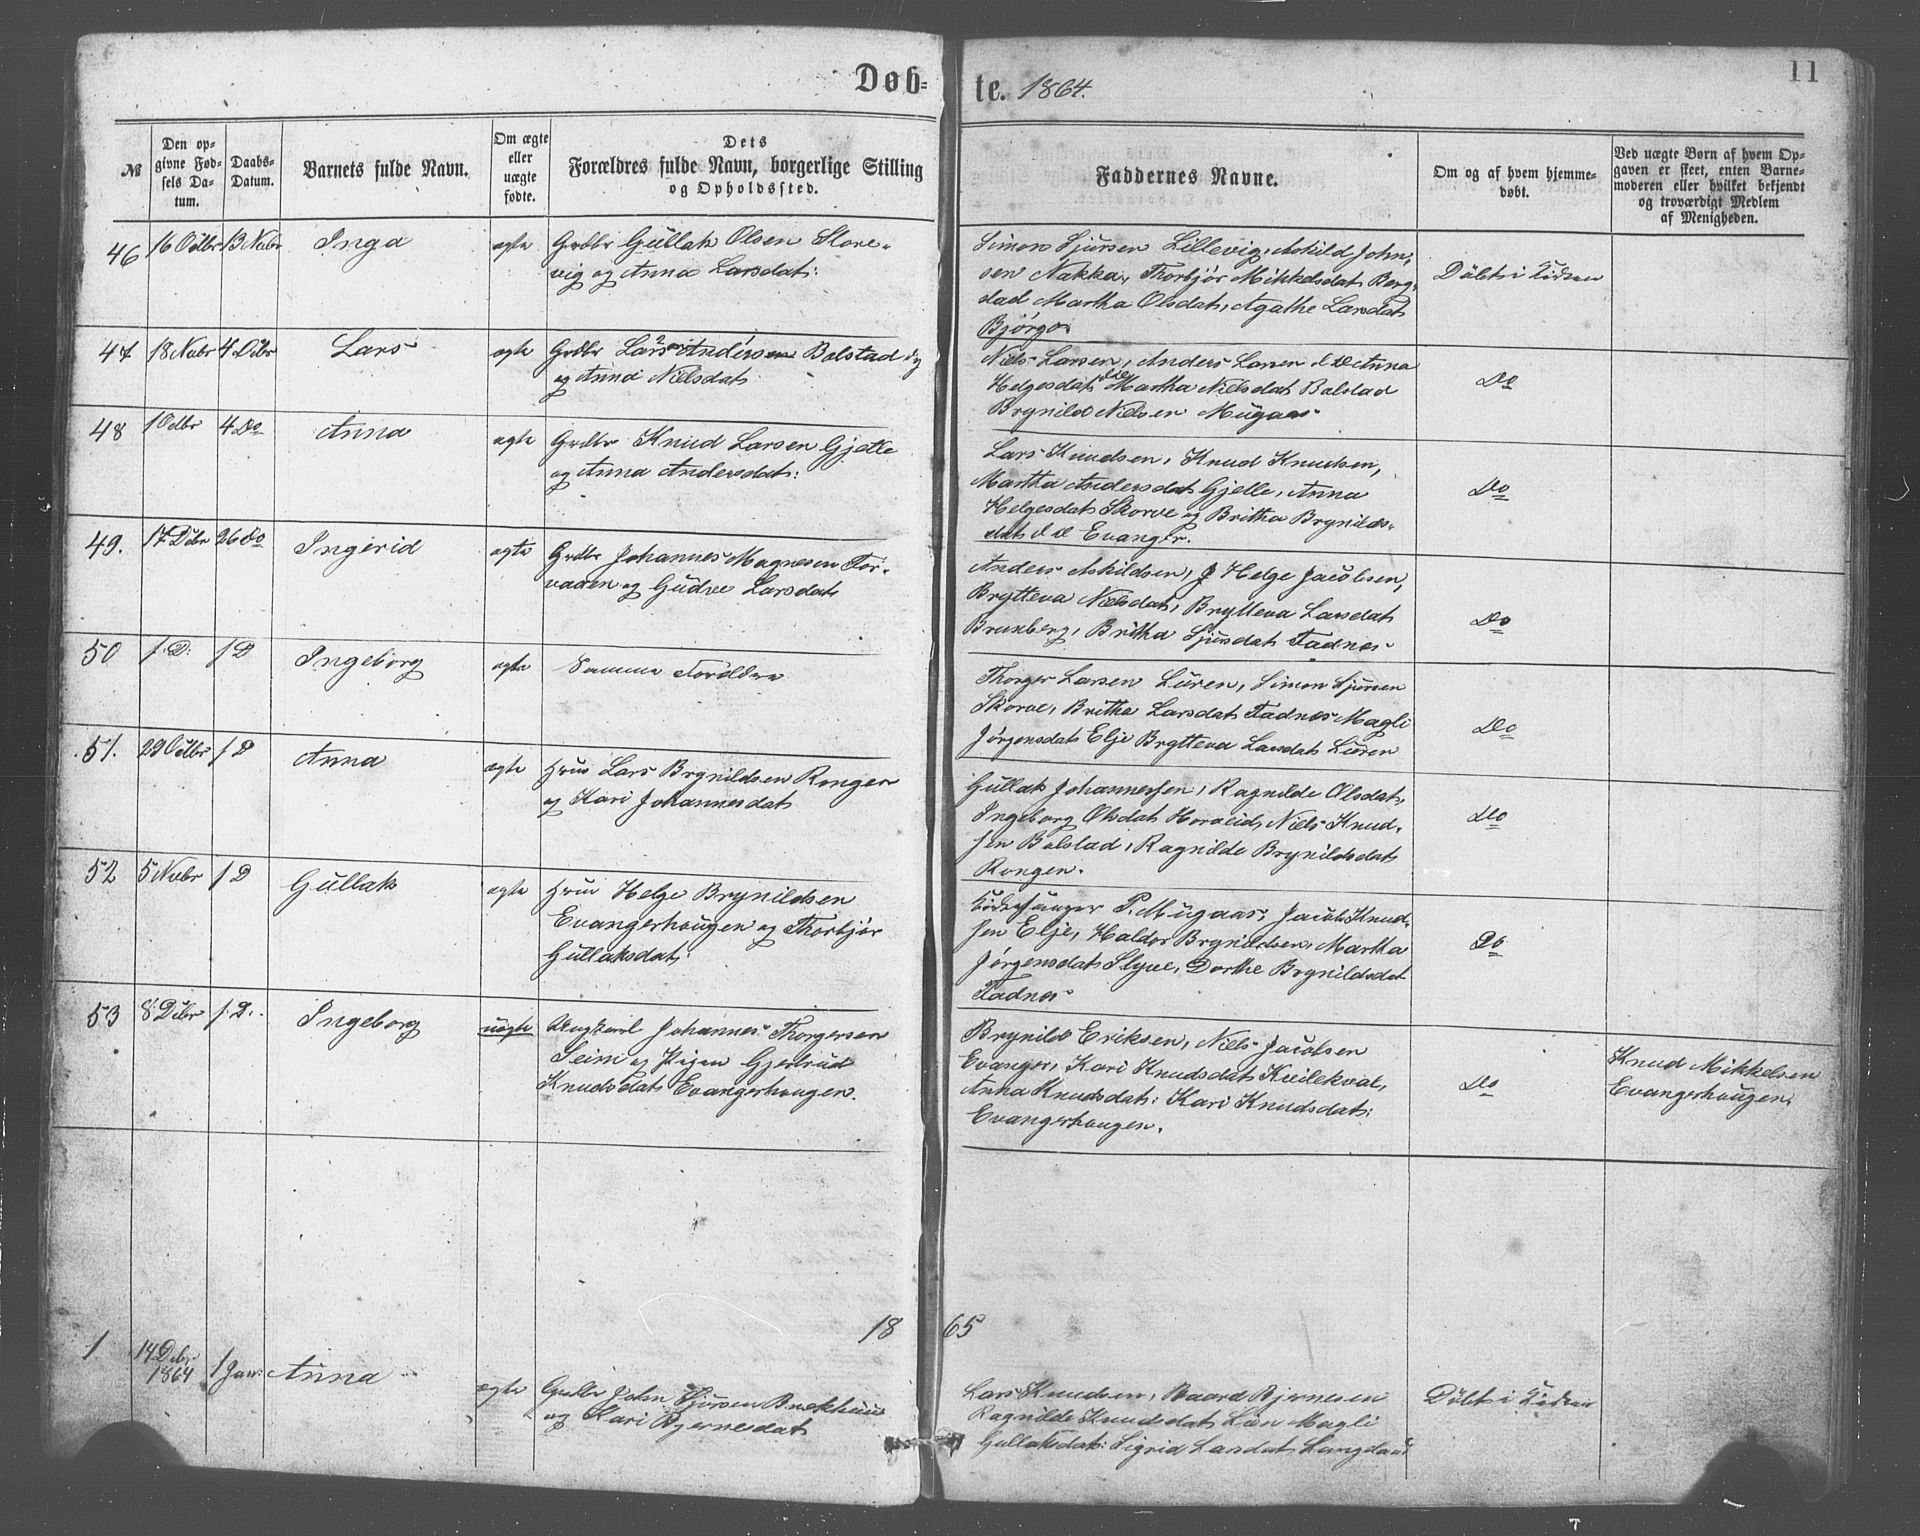 Døb-
te. 1864.
11
№
Den op-
givne Fød-
sels Da-
tum.
Daabs-
Datum.
Barnets fulde Navn.
Om ægte
eller
uægte
fødte.
Dets
Forældres fulde Navn, borgerlige Stilling
og Opholdssted.
Faddernes Navne.
Om og af hvem hjemme-
døbt.
Ved uægte Børn af hvem Op-
gaven er skeet, enten Barne-
moderen eller hvilket bekjendt
og troværdigt Medlem
af Menigheden.
46 16 Octbr 13 Nvbr Inga ægte Grdbr Gullak Olsen Store-
vig og Anna Larsdat:
Simon Sjursen Lillevig, Askild John-
sen Nakka, Thorbjør Mikkelsdat Berg-
stad Martha Olsdat, Agathe Larsdat
Bjørgo
Døbt i Kirken
47 18 Nvbr 4 Dcbr Lars ægte Grdbr Lars Andersen Bolstad
og Anna Nielsdat
Niels Larsen, Anders Larsen Anna
Helgesdat Martha Nielsdat Bolstad
Brynild Nielsen Mugaas
Do
48 1 4 Do Anna ægte Grdbr Knud Larsen Gjelle
og Anna Andersdat:
Lars Knudsen, Knud Knudsen,
Martha Andersdat Gjelle, Anna
Helgesdat Skorve og Britha Brynilds-
dat Evanger.
Do
49. 17 Dcbr 26 Do Ingerid ægte Grdbr Johannes Magnesen Tor-
varen og Gudve Larsdat
Anders Askildsen, Helge Jacobsen,
Brytteva Nielsdat, Brytteva Larsdat
Brunberg, Britha Sjursdat Fadnes
Do
50 f. D: f D Ingeborg ægte Samme Forældre
Thorger Larsen Luren, Simon Sjursen
Skorve, Britha Larsdat Fadnes Magli
Jørgensdat Elje Brytteva Larsdat Luren
Do
51. 29 Octbr f D Anna ægte Hmd Lars Brynildsen Rongen
og Kari Johannesdat
Gullak Johannessen, Ragnilde Olsdat,
Ingeborg Olsdat Horveid, Niels Knud-
sen Bolstad, Ragnilde Brynildsdat
Rongen.
Do
52 5 Nvbr f D Gullak ægte Hmd Helge Brynildsen
Evangerhougen og Thorbjør
Gullaksdat
Kirkesanger P. Mugaas, Jacob Knud-
sen Elje, Haldor Brynildsen, Martha
Jørgensdat Styve, Dorthe Brynildsdat
Fadnes
Do
53 8 Dcbr f. D. Ingeborg uægte Ungkarl Johannes Thorgersen
Seim og Pigen Gjertrud
Knudsdat Evangerhougen.
Brynild Eriksen, Niels Jacobsen
Evanger, Kari Knudsdat Kvilekval,
Anna Knudsdat: Kari Knudsdat:
Evangerhougen.
Do
Knud Mikkelsen
Evangerhougen.
18 65
1 14 Dcbr
1864 1 Jan: Anna ægte Grdbr John Sjursen Brekhuus
og Kari Bjernesdat
Lars Knudsen, Baard Bjernesen
Ragnilde Knudsdat Magli
Gullaksdat: Sigrid Larsdat
Døbt i Kirken